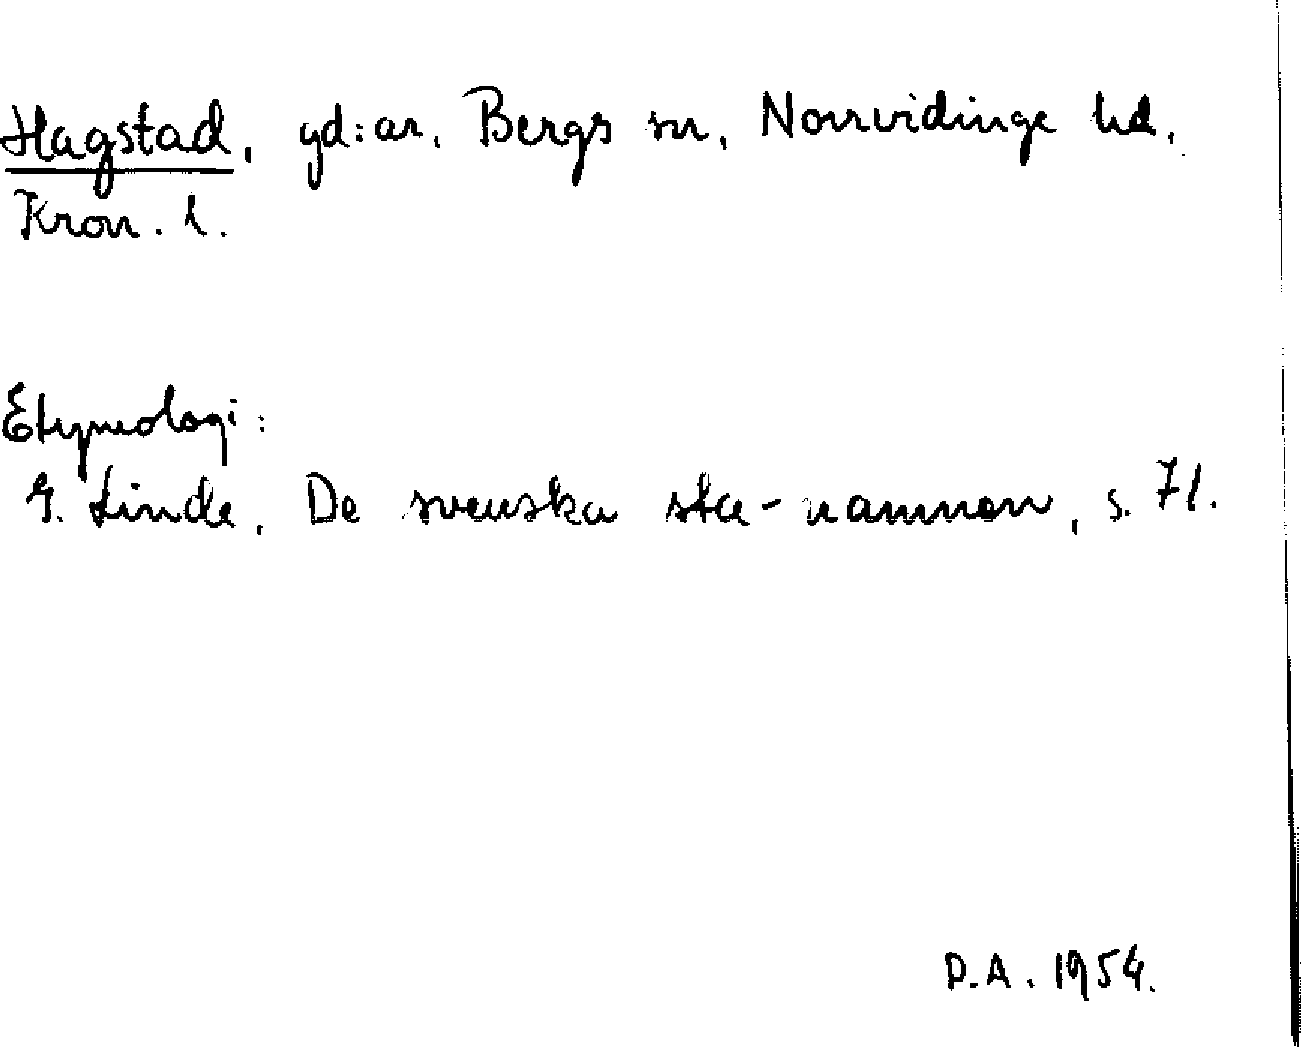 Hagstad, gd:ar, Bergs sn, Norrvidinge hd,
Kron. l.
Etymologi:
G. Linde, De svenska sta-namnen, s. 71.
D.A. 1954.